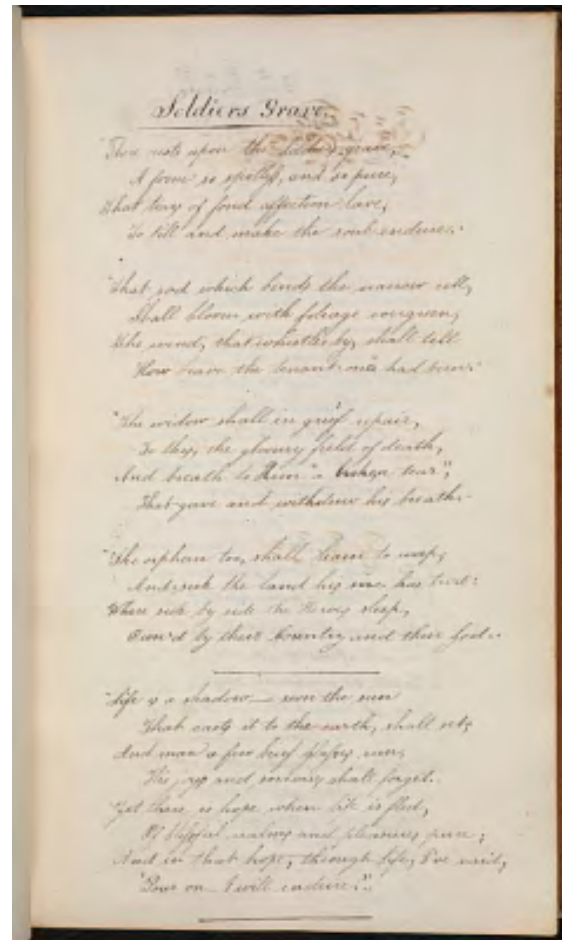 Soldiers Grave.
There rests upon the soldiers grave,
A form so spotless, and so pure,
That tears of fond affection lave,
To till and make the soul endure.
That sod which binds the narrow cell,
Shall bloom with foliage evergreen,
The wind, that whistles by, shall tell
How brave the tenant once had been.
The widow shall in grief repair,
To this, the gloomy field of death,
And breath to Him "a broken tear",
That gave and withdrew his breath.
The orphan too, shall learn to weep,
And seek the land his sire has trod:
Where side by side the Heroes sleep,
by their Country and their God.
"Life is a shadow — soon the sun
That casts it to the earth, shall set,
And man a few brief over,
His joys and sorrows shall forget.
Yet there is hope when life is fled,
Of blissful realms and pleasures pure;
And in that hope, through life, I've said,
"Pour on I will endure."